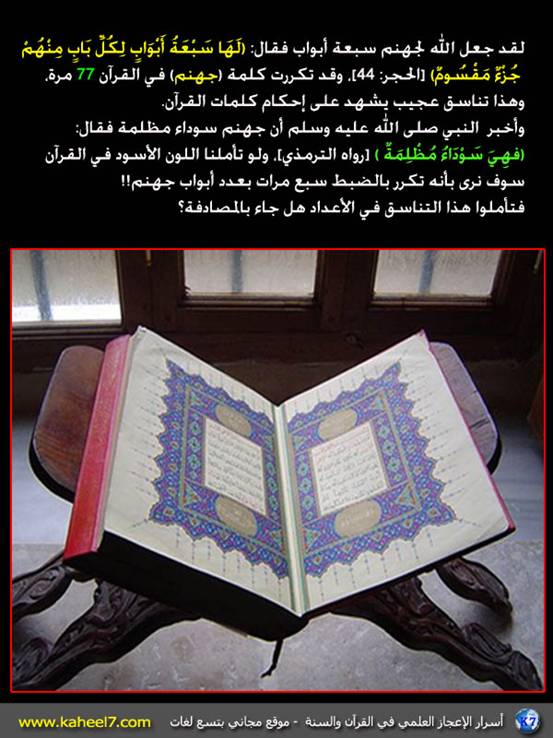 لقد جعل الله لجهنم سبعة أبواب فقال: (لَهَا سَبْعَةُ أَبْوَابٍ لِكُلِّ بَابٍ مِنْهُمْ
جُزْءٌ مَقْسُومٌ) [الحجر: 44]، وقد تكررت كلمة (جهنم) في القرآن 77 مرة،
وهذا تناسق عجيب يشهد على إحكام كلمات القرآن.
وأخبر النبي صلى الله عليه وسلم أن جهنم سوداء مظلمة فقال:
(فهِيَ سَوْدَاءُ مُظْلِمَةٌ) [رواه الترمذي]، ولو تأملنا اللون الأسود في القرآن
سوف نرى بأنه تكرر بالضبط سبع مرات بعدد أبواب جهنم!!
فتأملوا هذا التناسق في الأعداد هل جاء بالمصادفة؟
K7 أسرار الإعجاز العلمي في القرآن والسنة - موقع مجاني بتسع لغات www.kaheel7.com